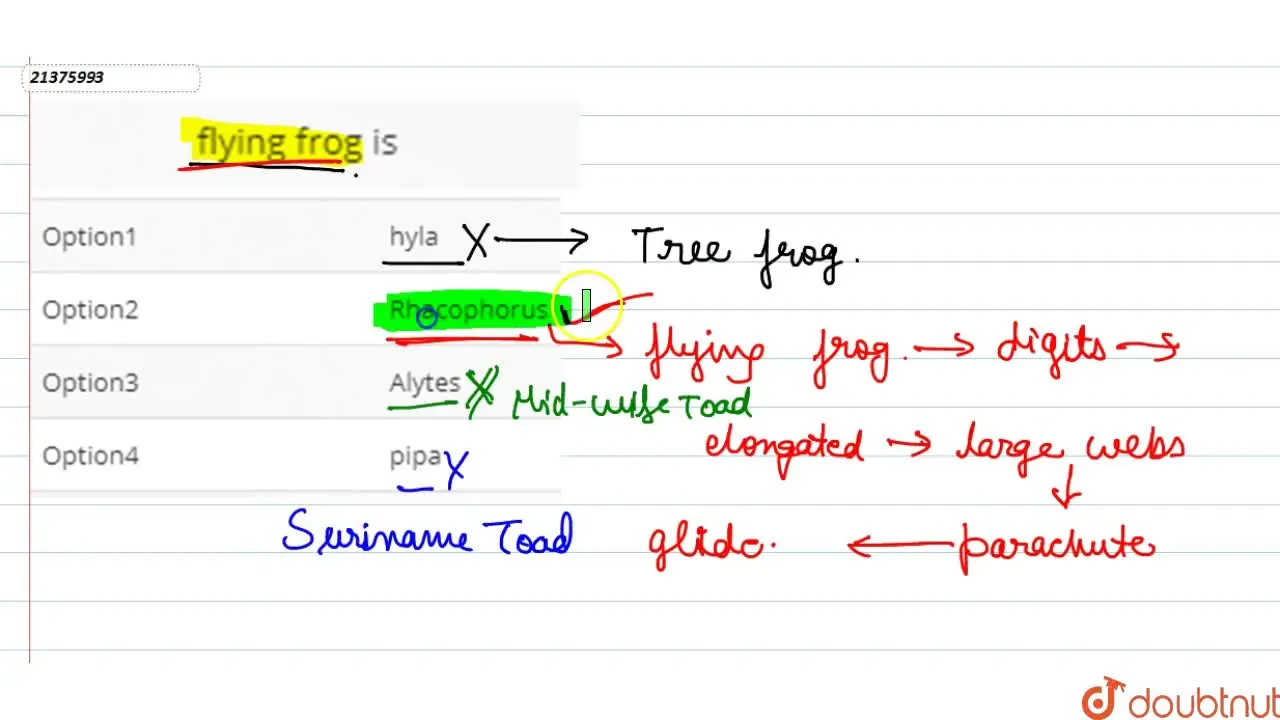 21375993
flying frog is
Option1 hyla X → Tree frog.
Option2 Rhacophorus
→ flying frog. → digits →
Option3 Alytes X Mid-wife Toad
elongated → large webs
Option4 pipa X
↓
Suriname Toad glide. ← parachute
doubtnut